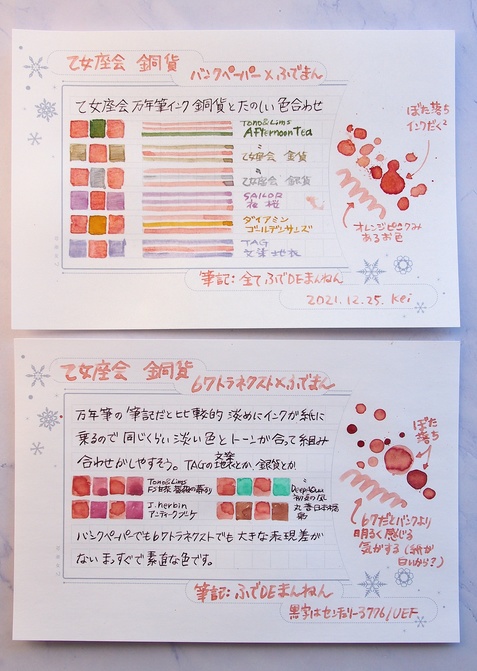 乙女座会 銅貨
バンクペーパー×ふでまん
乙女座会万年筆インク 銅貨とたのしい色合わせ
Tono&Lims
Afternoon Tea
乙女座会 金貨
乙女座会 銀貨
SAILOR
夜桜
ダイアミン
ゴールデンサンズ
TAG
文箋地衣
ぼた落ち
インクだくだく
オレンジピンクみ
あるお色
筆記:全てふでDEまんねん
2021.12.25. Kei
乙女座会 銅貨
67トラネクスト×ふでまん
万年筆の筆記だと比較的 淡めにインクが紙に
乗るので同じくらい淡い色とトーンが合って組み
合わせがしやすそう。TAGの文箋地衣とか、銀貨とか
Tono&Lims
J.herbin
アンティークブーケ
丸善日本橋
バンクペーパーでも67トラネクストでも大きな表現差が
ないまっすぐで素直な色です。
ぼた
落ち
67だとバンクより
明るく感じる
気がする(紙が
白いから?)
筆記:ふでDEまんねん
黒字はセンチュリー3776/UEF